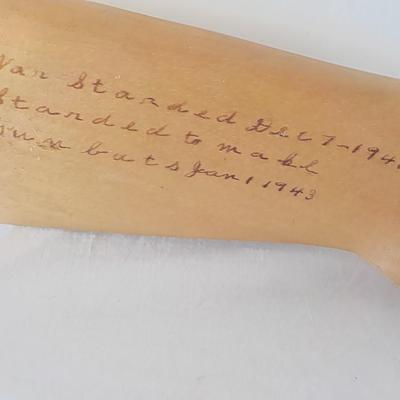 War Standed Dec 7-194
Standed to make
gun bats Jan 1 1943